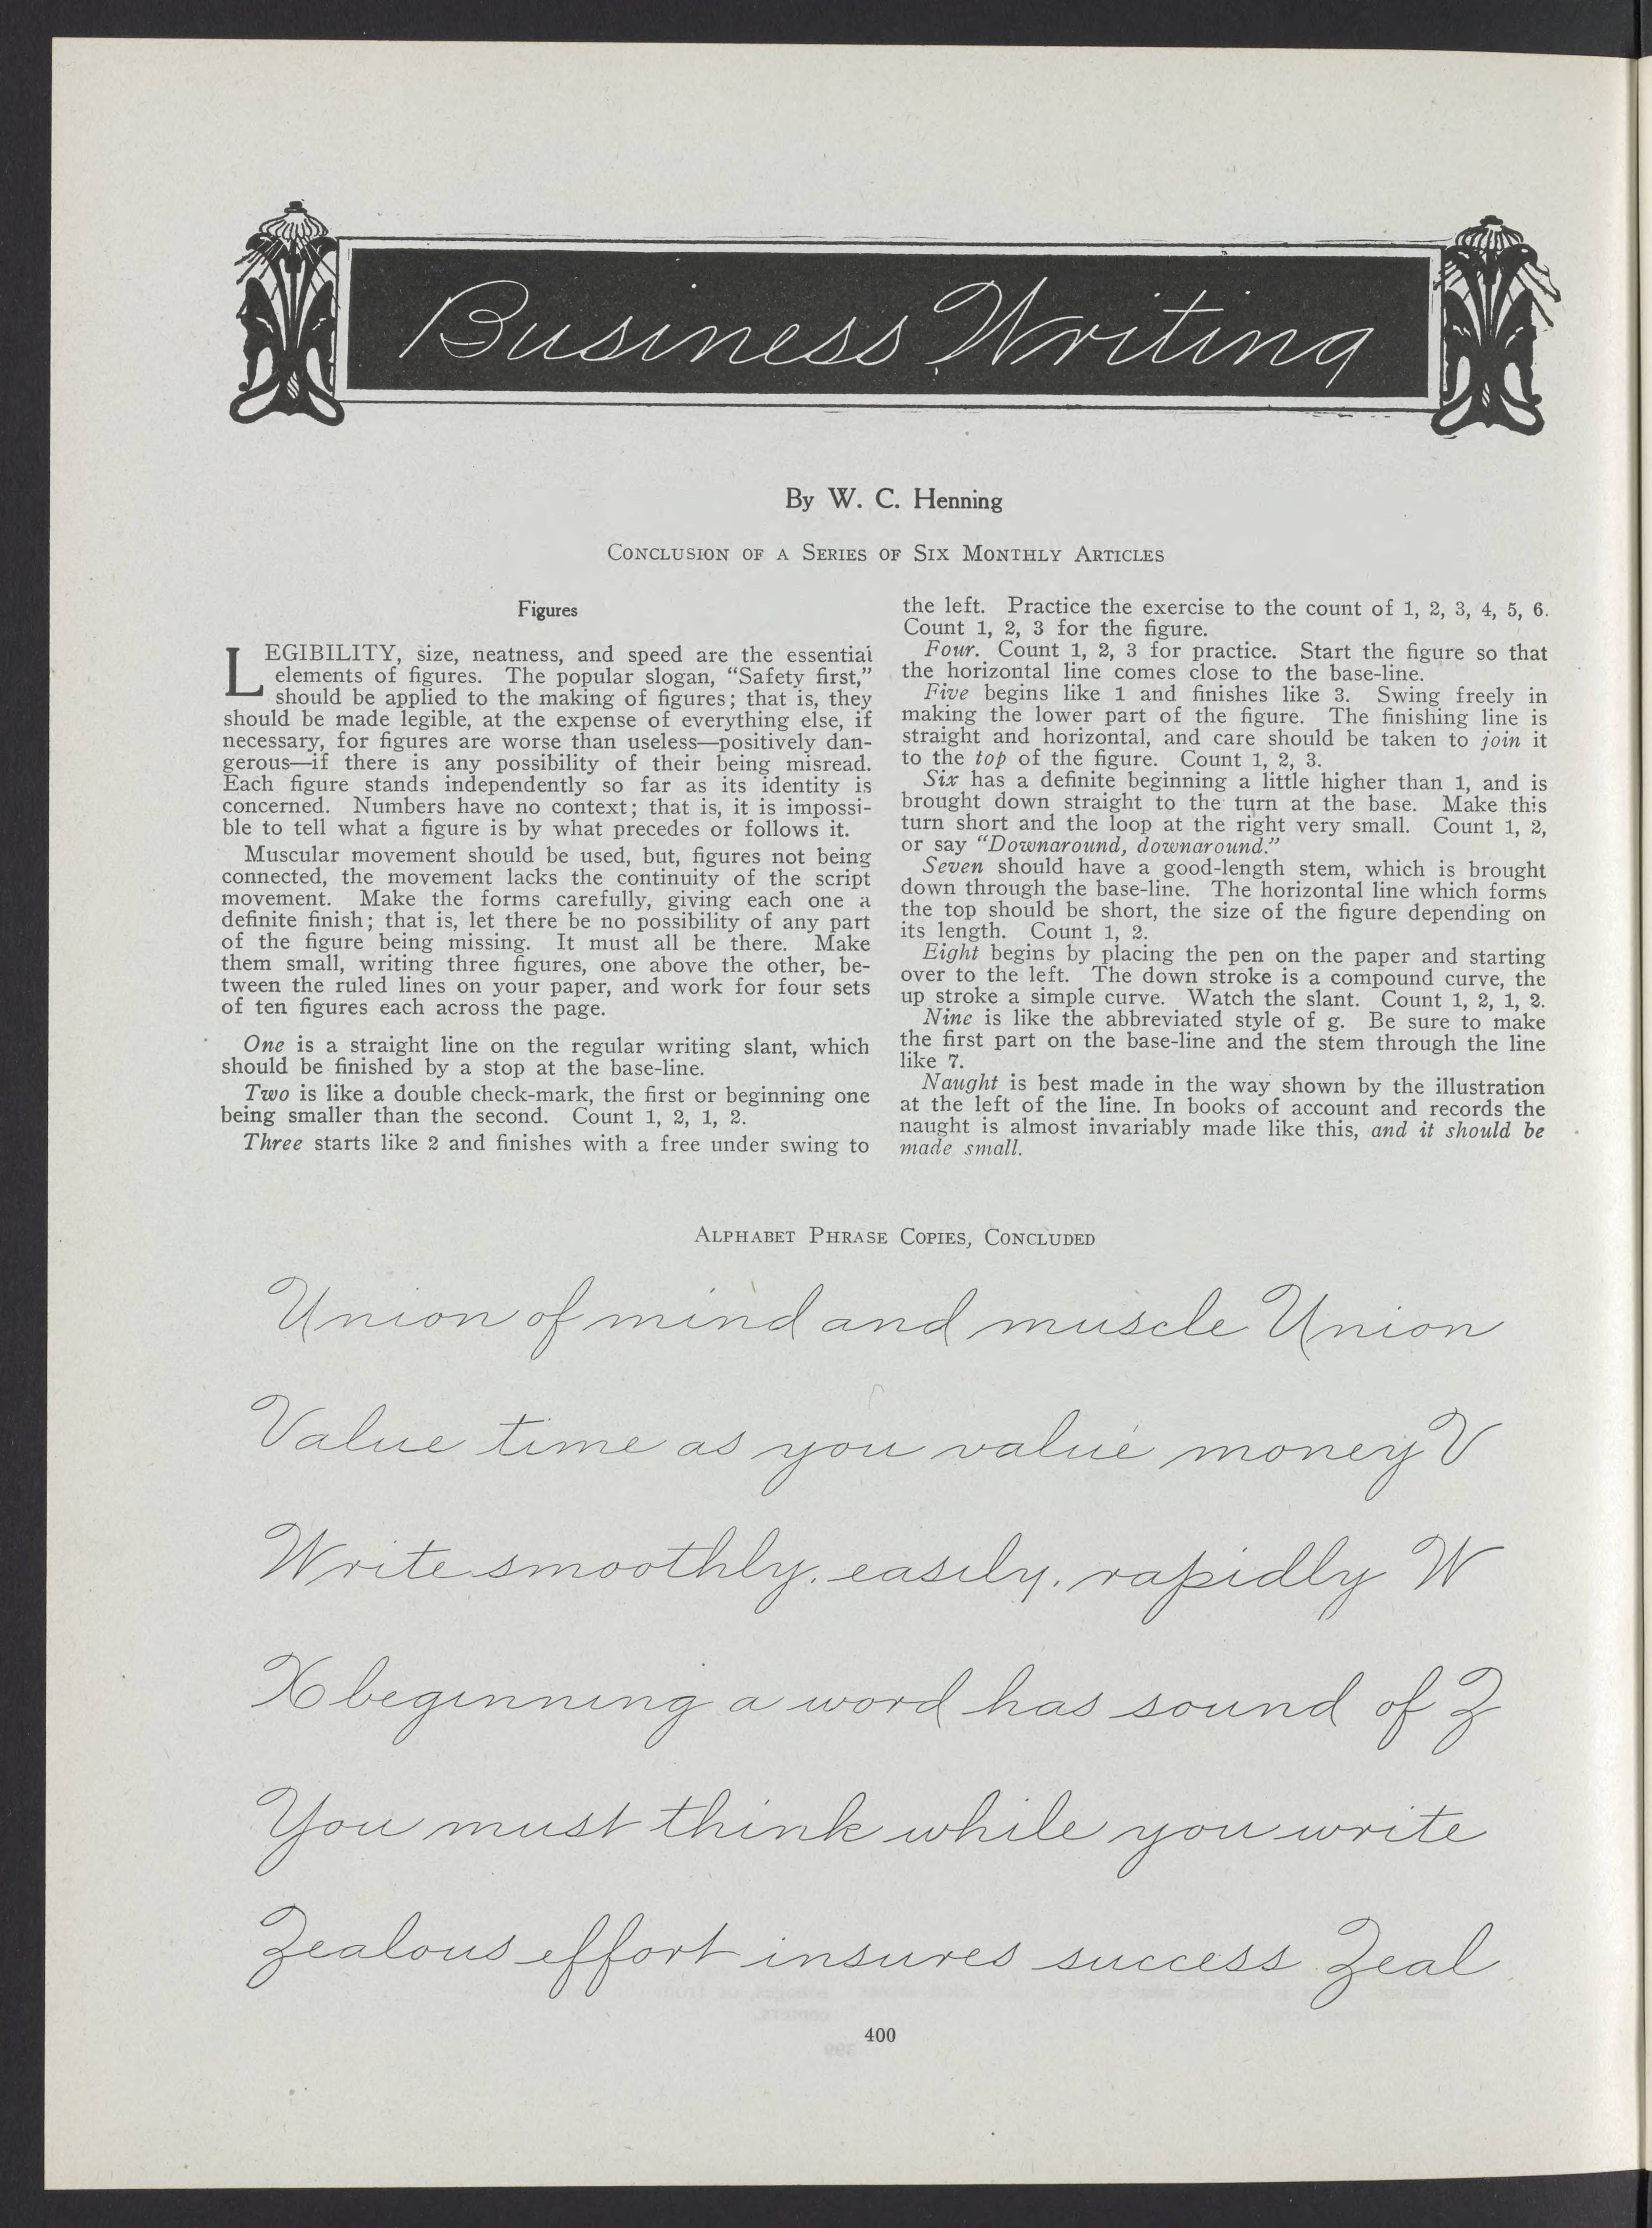 Business Writing
By W. C. Henning
CONCLUSION OF A SERIES OF SIX MONTHLY ARTICLES
Figures
LEGIBILITY, size, neatness, and speed are the essential
elements of figures. The popular slogan, “Safety first,”
should be applied to the making of figures; that is, they
should be made legible, at the expense of everything else, if
necessary, for figures are worse than useless—positively dan-
gerous—if there is any possibility of their being misread.
Each figure stands independently so far as its identity is
concerned. Numbers have no context; that is, it is impossi-
ble to tell what a figure is by what precedes or follows it.
Muscular movement should be used, but, figures not being
connected, the movement lacks the continuity of the script
movement. Make the forms carefully, giving each one a
definite finish; that is, let there be no possibility of any part
of the figure being missing. It must all be there. Make
them small, writing three figures, one above the other, be-
tween the ruled lines on your paper, and work for four sets
of ten figures each across the page.
One is a straight line on the regular writing slant, which
should be finished by a stop at the base-line.
Two is like a double check-mark, the first or beginning one
being smaller than the second. Count 1, 2, 1, 2.
Three starts like 2 and finishes with a free under swing to
the left. Practice the exercise to the count of 1, 2, 3, 4, 5, 6.
Count 1, 2, 3 for the figure.
Four. Count 1, 2, 3 for practice. Start the figure so that
the horizontal line comes close to the base-line.
Five begins like 1 and finishes like 3. Swing freely in
making the lower part of the figure. The finishing line is
straight and horizontal, and care should be taken to join it
to the top of the figure. Count 1, 2, 3.
Six has a definite beginning a little higher than 1, and is
brought down straight to the turn at the base. Make this
turn short and the loop at the right very small. Count 1, 2,
or say “Downaround, downaround.”
Seven should have a good-length stem, which is brought
down through the base-line. The horizontal line which forms
the top should be short, the size of the figure depending on
its length. Count 1, 2.
Eight begins by placing the pen on the paper and starting
over to the left. The down stroke is a compound curve, the
up stroke a simple curve. Watch the slant. Count 1, 2, 1, 2.
Nine is like the abbreviated style of g. Be sure to make
the first part on the base-line and the stem through the line
like 7.
Naught is best made in the way shown by the illustration
at the left of the line. In books of account and records the
naught is almost invariably made like this, and it should be
made small.
ALPHABET PHRASE COPIES, CONCLUDED
Union of mind and muscle Union
Value time as you value money V
Write smoothly, easily, rapidly W
X beginning a word has sound of Z
You must think while you write
Zealous effort insures success Zeal
400